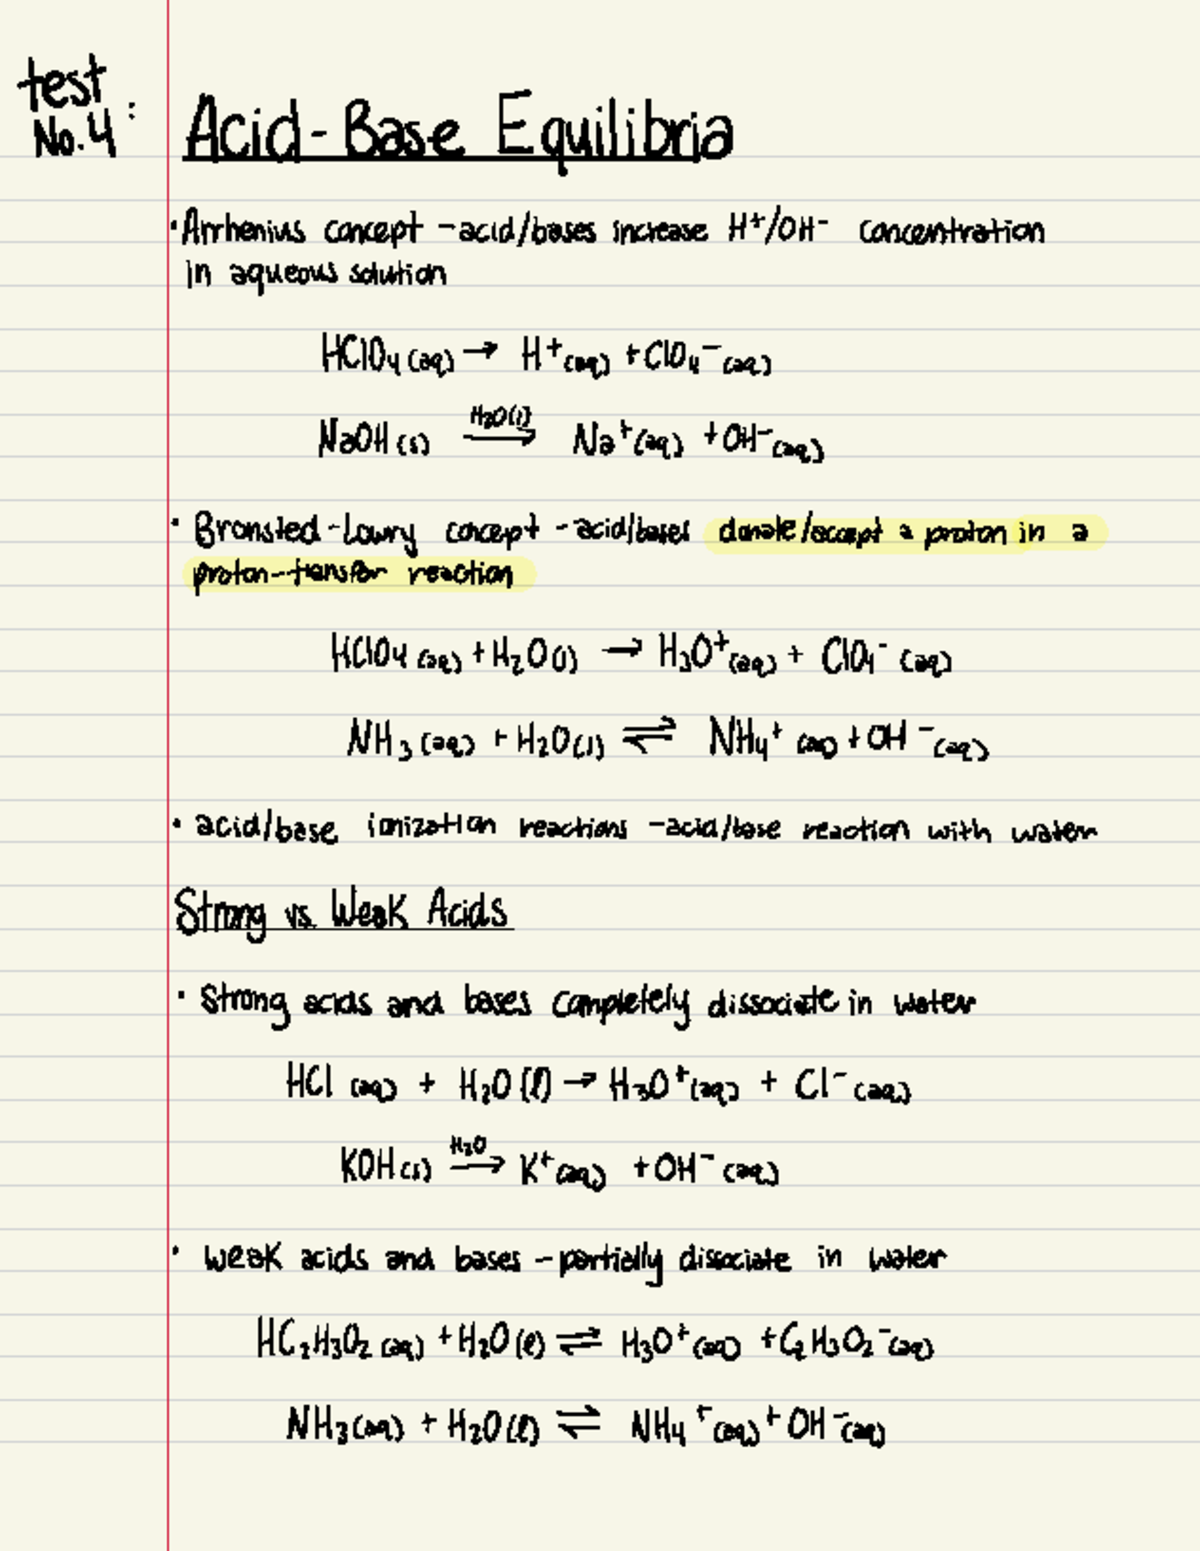 test
No. 4 :
Acid-Base Equilibria
· Arrhenius concept - acid/bases increase H⁺/OH⁻ concentration
in aqueous solution
HClO₄ (aq) → H⁺ (aq) + ClO₄⁻ (aq)
H₂O(l)
NaOH (s) → Na⁺ (aq) + OH⁻ (aq)
· Bronsted-Lowry concept - acid/bases donate/accept a proton in a
proton-transfer reaction
HClO₄ (aq) + H₂O (l) → H₃O⁺ (aq) + ClO₄⁻ (aq)
NH₃ (aq) + H₂O (l) ⇌ NH₄⁺ (aq) + OH⁻ (aq)
· acid/base ionization reactions - acid/base reaction with water
Strong vs. Weak Acids
· Strong acids and bases completely dissociate in water
HCl (aq) + H₂O (l) → H₃O⁺ (aq) + Cl⁻ (aq)
H₂O
KOH (s) → K⁺ (aq) + OH⁻ (aq)
· weak acids and bases - partially dissociate in water
HC₂H₃O₂ (aq) + H₂O (l) ⇌ H₃O⁺ (aq) + C₂H₃O₂⁻ (aq)
NH₃ (aq) + H₂O (l) ⇌ NH₄⁺ (aq) + OH⁻ (aq)